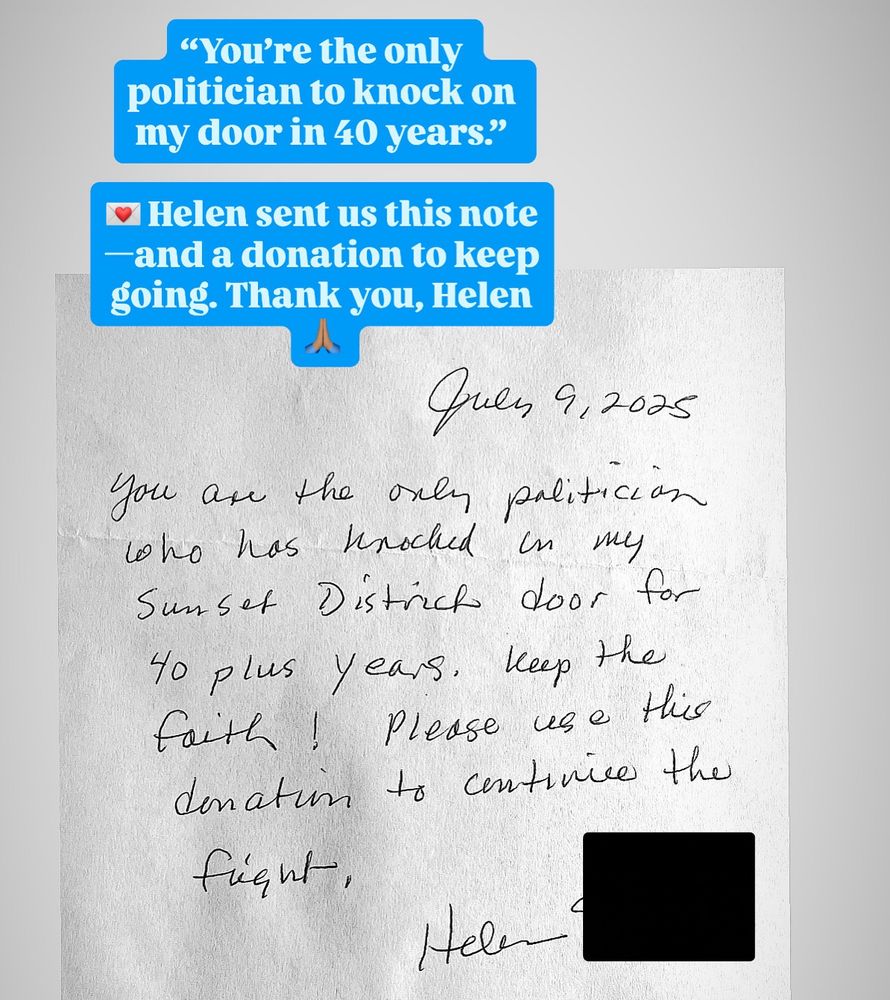 “You’re the only
politician to knock on
my door in 40 years.”
💌 Helen sent us this note
—and a donation to keep
going. Thank you, Helen
🙏🏽
July 9, 2025
You are the only politician
who has knocked on my
Sunset District door for
40 plus years. Keep the
faith! Please use this
donation to continue the
fight,
Helen